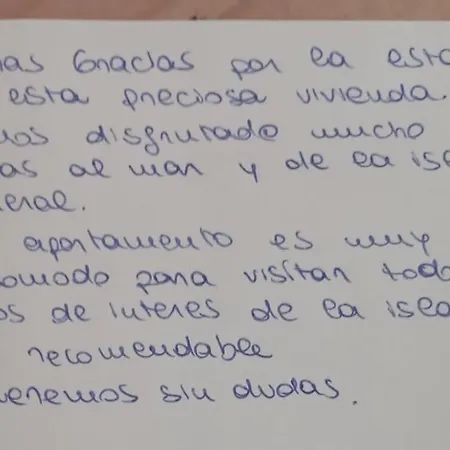 nas Gracias por la esta
esta preciosa vivienda.
mos disfrutado mucho
as al mar y de la is
eral.
apartamento es muy
omodo para visitar todo
os de interes de la isla
recomendable
veremos sin dudas.